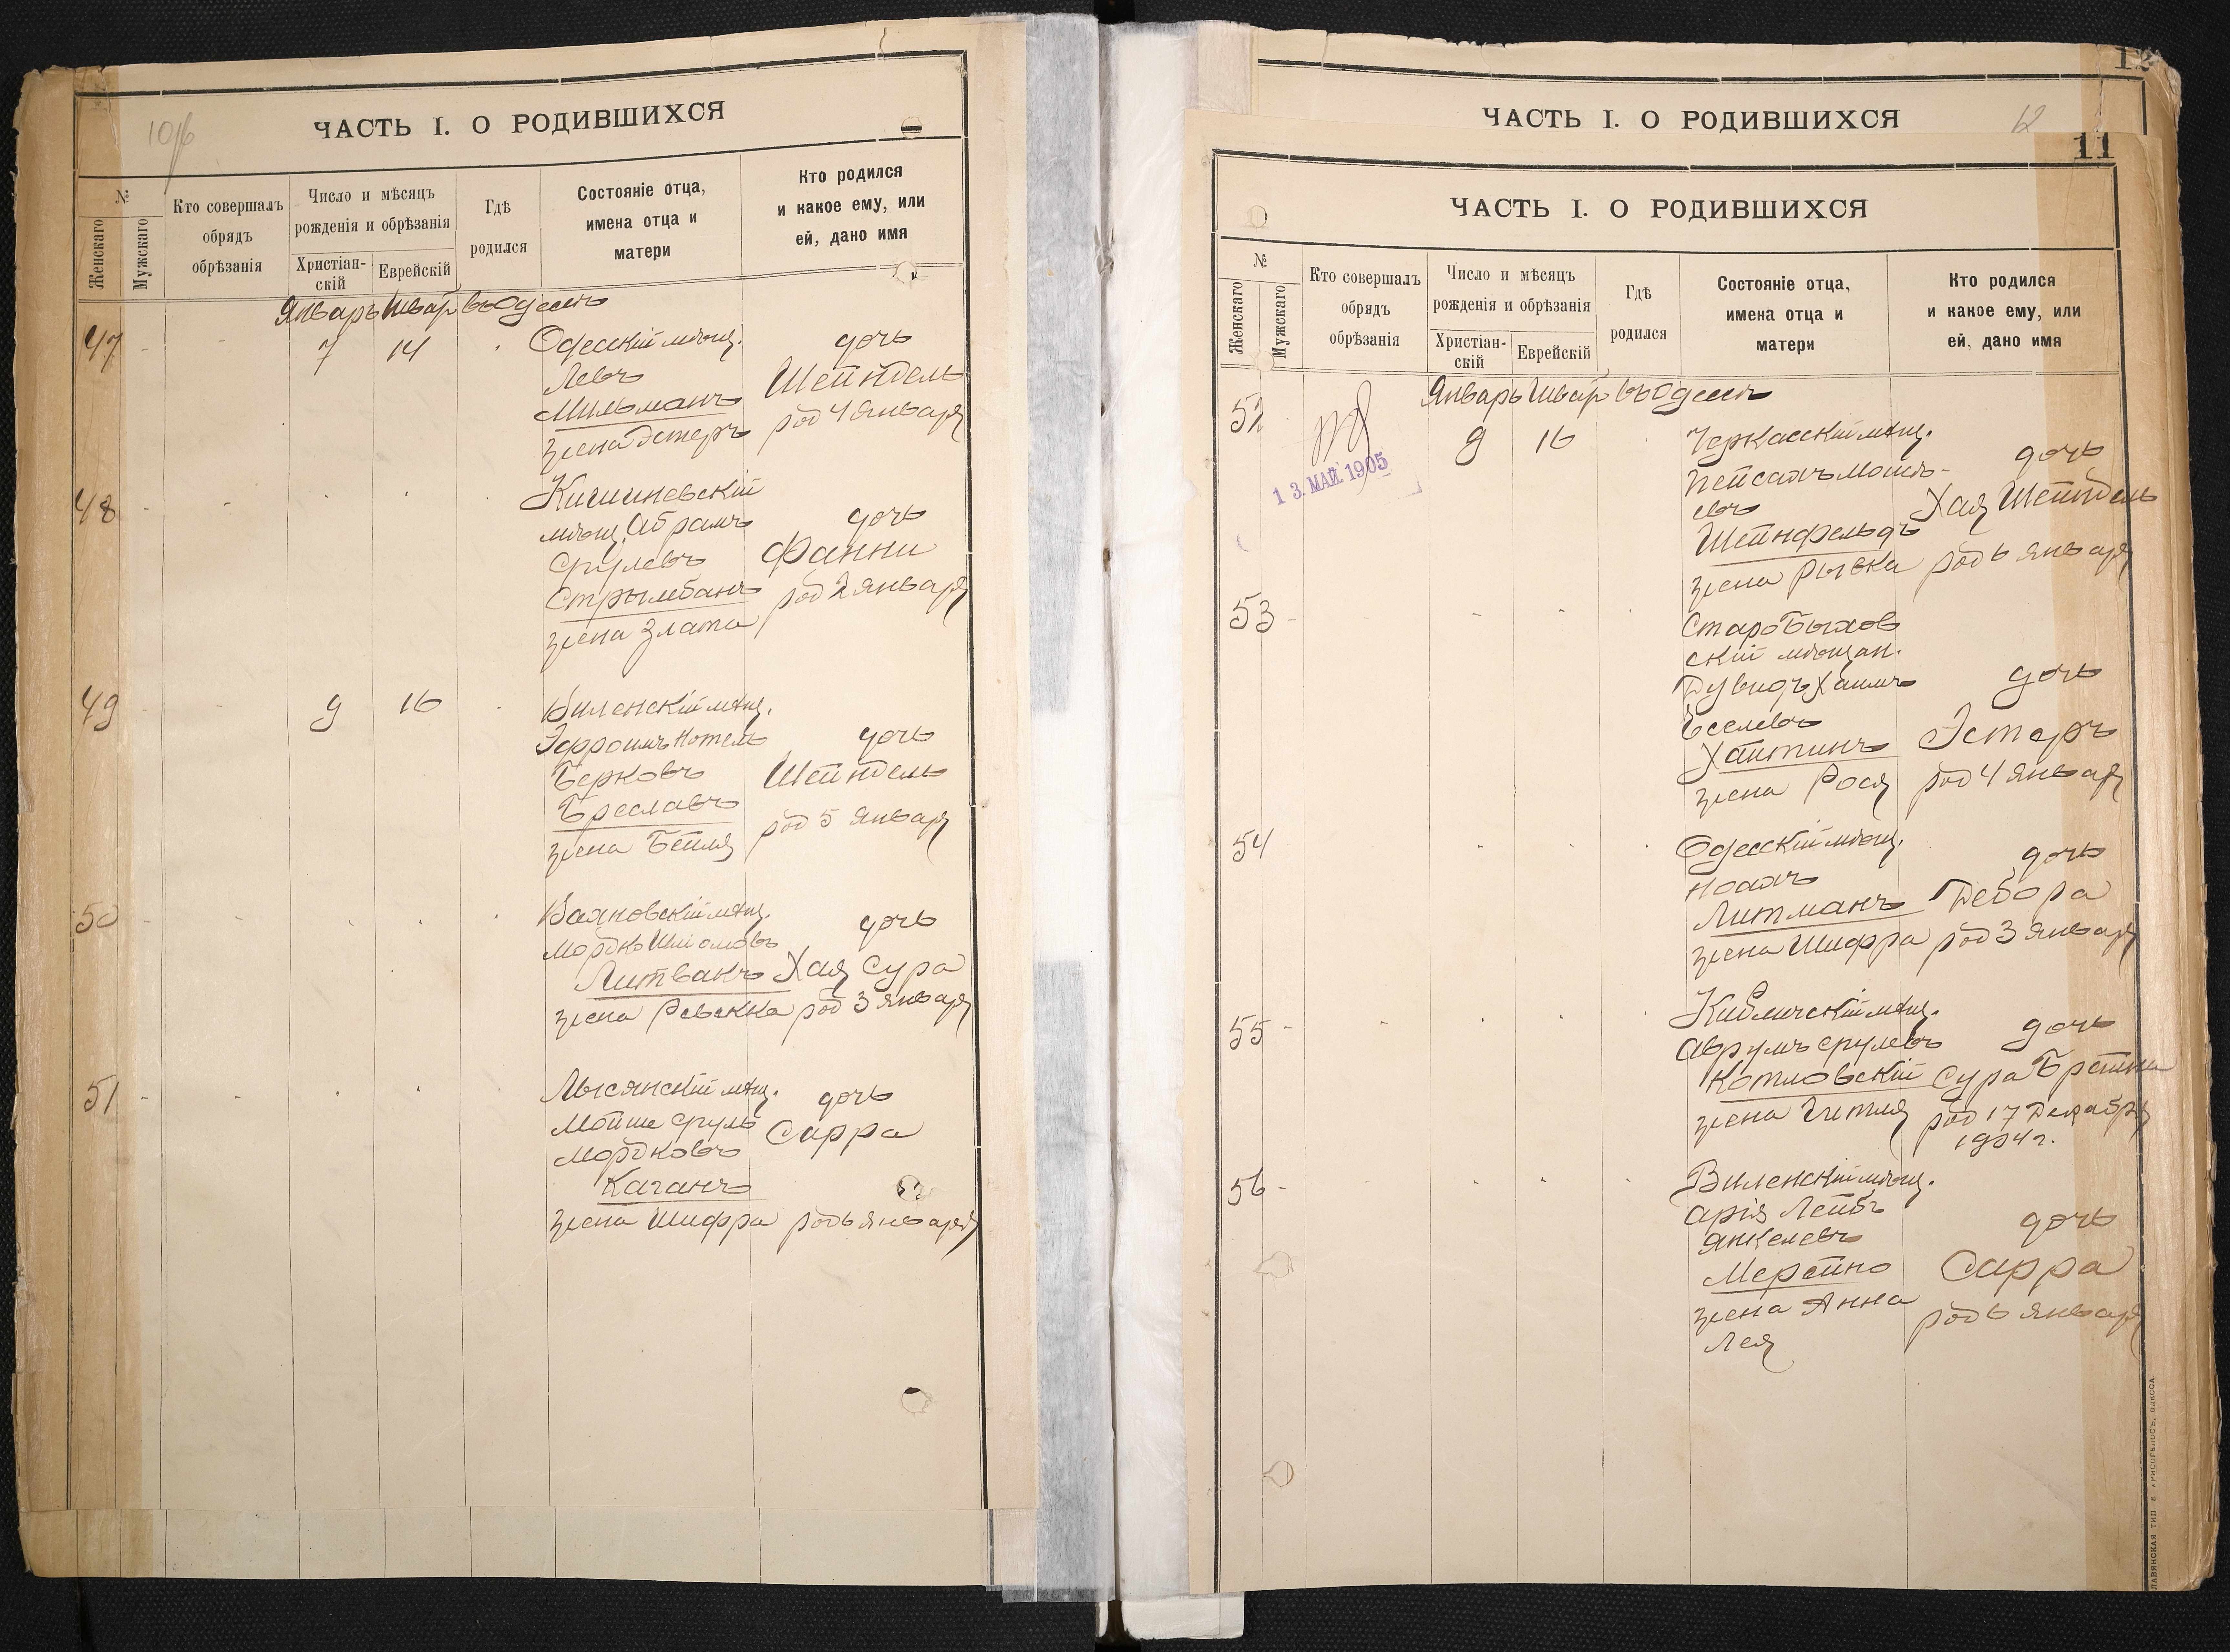 10/б
ЧАСТЬ I. О РОДИВШИХСЯ
№
Женскаго
Мужскаго
Кто совершалъ обрядъ обрѣзанія
Число и мѣсяцъ рожденія и обрѣзанія
Христіан-скій
Еврейскій
Гдѣ родился
Состояніе отца, имена отца и матери
Кто родился и какое ему, или ей, дано имя
Январь Шватъ въ Одессѣ
47 - - 7 14
Одесскій мѣщ.
Левъ
Мильманъ
жена Эстеръ
дочь
Шейндель
род 4 января
48 - -
Кишиневскій
мѣщ. Абрамъ
Срулевъ
Стрымбанъ
жена Злата
дочь
Фанни
род 2 января
49 - - 9 16
Виленскій мѣщ.
Эфроимъ Нотель
Берковъ
Бреславъ
жена Бейля
дочь
Шейндель
род 5 января
50 - -
мѣщ.
Мордко Шліомовъ
Литванъ
жена Ревекка
дочь
Хая Сура
род 3 января
51 - -
Лысянскій мѣщ.
Мойше Сруль
Мордковъ
Каганъ
жена Шифра
дочь
Сарра
род 6 января
12
ЧАСТЬ I. О РОДИВШИХСЯ
12
11
ЧАСТЬ I. О РОДИВШИХСЯ
№
Женскаго
Мужскаго
Кто совершалъ обрядъ обрѣзанія
Число и мѣсяцъ рожденія и обрѣзанія
Христіан-скій
Еврейскій
Гдѣ родился
Состояніе отца, имена отца и матери
Кто родился и какое ему, или ей, дано имя
Январь Шватъ въ Одессѣ
52 9 16
13. МАЙ. 1905
Черкасскій мѣщ.
Пейсахъ Мошк-
евъ
Шейнфельдъ
жена Рывка
дочь
Хая Шейндель
род 6 января
53 -
Старобыхов
скій мѣщан.
Дувидъ Хаимъ
Еселевъ
Хайтинъ
жена Рося
дочь
Эстеръ
род 4 января
54
Одесскій мѣщ.
Ноахъ
Литманъ
жена Шифра
дочь
Дебора
род 3 января
55 -
Кибличскій мѣщ.
Аврумъ Срулевъ
Котловскій
жена Гитля
дочь
Сура Брейна
род 17 Декабря
1904 г.
56 -
Виленскій мѣщ.
Арія Лейбъ
Янкелевъ
Мерейно
жена Анна
Лея
дочь
Сарра
род 6 января